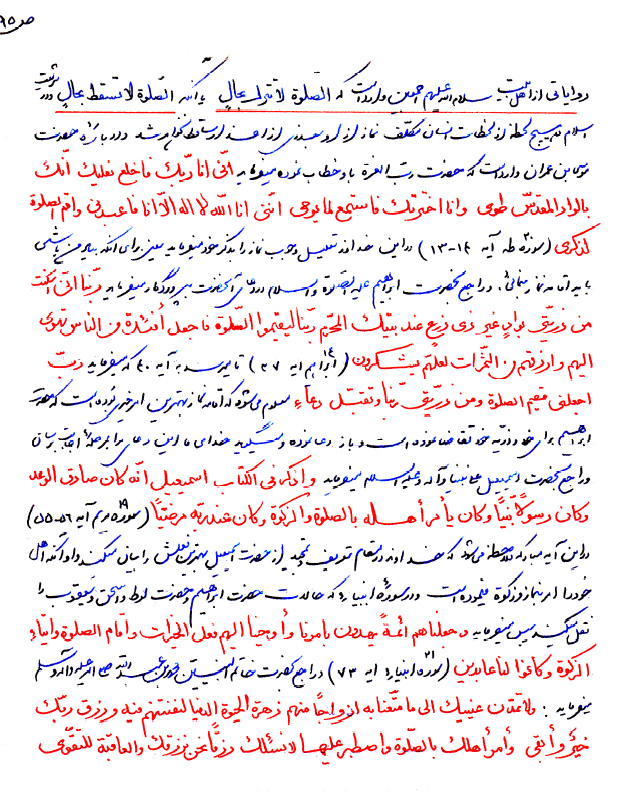 ص ۹۵
روایاتی از اهل بیت سلام الله علیهم اجمعین وارد است که الصّلوة لا تترك بحالٍ یا آنکه الصّلوة لا تسقط بحالٍ در شریعت
اسلام در هیچ لحظه از لحظات انسان مکلّف نماز از او ساقط نخواهد شد و در باره حضرت
موسی بن عمران وارد است که حضرت ربّ العزة باو خطاب نموده میفرماید انّی انا ربّك فاخلع نعلیك انّك
بالواد المقدّس طوی وانا اخترتك فاستمع لما یوحی انّنی انا اللّه لا اله الّا انا فاعبدنی واقم الصلوة
لذکری (سوره ۲۰ طه آیه ۱۴-۱۳) در این خداوند تعلیل وجوب نماز را بذکر خود میفرماید یعنی برای آنکه بیاد من باشی
باید اقامه نماز نمائی. و راجع بحضرت ابراهیم علیه الصّلوة والسلام در دعای آنحضرت به پروردگار میفرماید ربّنا انّی اسکنت
من ذریّتی بوادٍ غیر ذی زرع عند بیتك المحرّم ربّنا لیقیموا الصّلوة فاجعل أفئدة من الناس تهوی
الیهم وارزقهم من الثّمرات لعلّهم یشکرون (۱۴ ابراهیم آیه ۳۷) تا میرسد به آیه ۴۰ که میفرماید ربّ
اجعلنی مقیم الصلوة ومن ذریّتی ربّنا وتقبّل دعاء معلوم میشود که اقامه نماز بهترین امر خیری بوده است که حضرت
ابراهیم برای خود و ذریّه خود تقاضا نموده است و باز دعا نموده و میگوید خدای ما این دعای مرا بمرحله اجابت برسان
و راجع بحضرت اسمعیل علی نبینا وآله و علیه السلام میفرماید واذکر فی الکتاب اسمعیل انّه کان صادق الوعد
وکان رسولاً نبّیاً وکان یأمر أهله بالصلوة والزکوة وکان عند ربّه مرضیّاً (سوره ۱۹ مریم آیه ۵۶-۵۵)
در این آیه مبارکه ملاحظه میشود که خداوند در مقام تعریف و تمجید از حضرت اسمعیل بهترین تعریفش را بیان میکند و او آنکه اهل
خود را امر بنماز و زکوة مینموده است و در سوره انبیاء که حالات حضرت ابراهیم و حضرت لوط و اسحق و یعقوب را
نقل میکند سپس میفرماید وجعلناهم أئمةً یهدون بأمرنا وأوحینا الیهم فعل الخیرات واقام الصلوة وایتاء
الزکوة وکانوا لنا عابدین (سوره ۲۱ انبیاء آیه ۷۳) و راجع بحضرت خاتم النبیّین محمد بن عبد الله صلی الله علیه وآله وسلم
میفرماید : ولا تمدّن عینیك الی ما متّعنا به ازواجاً منهم زهرة الحیوة الدنیا لنفتنهم فیه ورزق ربّك
خیرٌ وأبقی وأمر أهلك بالصّلوة واصطبر علیها لا نسئلك رزقاً نحن نرزقك والعاقبة للتقوی